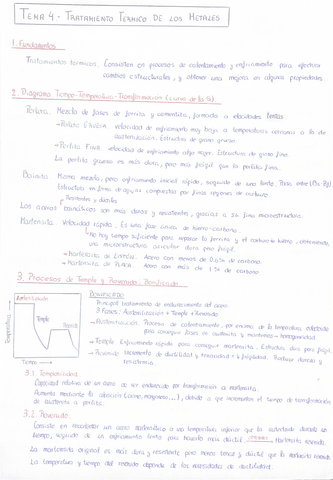 TEMA 4.- TRATAMIENTO TÉRMICO DE LOS METALES
1. Fundamentos
Tratamientos térmicos. Consisten en procesos de calentamiento y enfriamiento para efectuar
cambios estructurales, y obtener una mejora en algunas propiedades.
2. Diagrama Tiempo-Temperatura-Transformación (curva de la S).
Perlita. Mezcla de fases de ferrita y cementita, formada a velocidades lentas
→ Perlita Gruesa. velocidad de enfriamiento muy baja a temperatura cercana a la de
austenización. Estructura de grano grueso
→ Perlita Fina. velocidad de enfriamiento algo mayor. Estructura de grano fino.
La perlita gruesa es más dura, pero más frágil que la perlita fina.
Bainita. Misma mezcla, pero enfriamiento inicial rápido, seguido de uno lento.
Estructura en forma de agujas compuestas por finas regiones de carburo.
→ Resistentes y dúctiles
Los aceros bainíticos son más duros y resistentes, gracias a su fina microestructura.
Martensita. Velocidad rápida. Es una fase única de hierro-carbono.
→ No hay tiempo suficiente para separar la ferrita y el carburo de hierro, obteniendo
una microestructura acicular dura pero frágil.
→ Martensita de Listón. Acero con menos de 0,6% de carbono.
→ Martensita de Placa. Acero con más de 1% de carbono.
3. Procesos de Temple y Revenido: Bonificado
Austenizado
Temple
Revenido
Temperatura
Tiempo
BONIFICADO
Principal tratamiento de endurecimiento del acero.
3 Fases: Austenización + Temple + Revenido
→ Austenización. Proceso de calentamiento, por encima de la temperatura adecuada
para conseguir fases de austenita y mantenerlo → homogeneidad
→ Temple. Enfriamiento rápido para conseguir martensita. Estructura dura pero frágil.
→ Revenido. Incremento de ductilidad y tenacidad → ↓ fragilidad. Reduce dureza y
resistencia.
3.1. Templabilidad
Capacidad relativa de un acero de ser endurecido por transformación a martensita.
Aumenta mediante la aleación (cromo, manganeso...), debido a que incrementan el tiempo de transformación
de austenita a perlita.
3.2. Revenido
Consiste en recalentar un acero martensítico a una temperatura inferior que la austenita durante un
tiempo, seguido de un enfriamiento lento para hacerlo más dúctil. Martensita revenida.
La martensita original es más dura y resistente pero menos tenaz y dúctil que la martensita revenida.
La temperatura y tiempo del revenido depende de las necesidades de ductilidad.